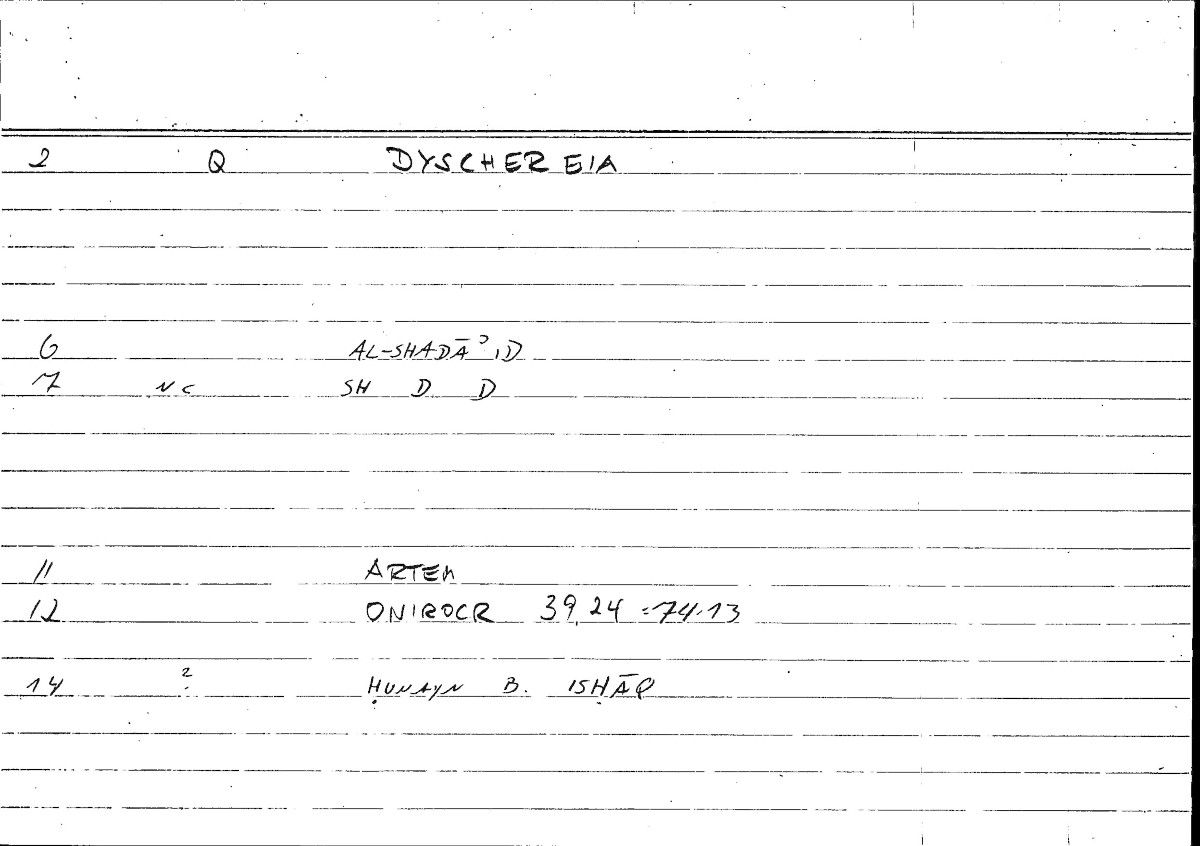 2 Q DYSCHEREIA
6 AL-SHADĀʾID
7 NC SH D D
11 ARTEM
12 ONIROCR 39,24 = 74.13
14 ? ḤUNAYN B. ISḤĀQ